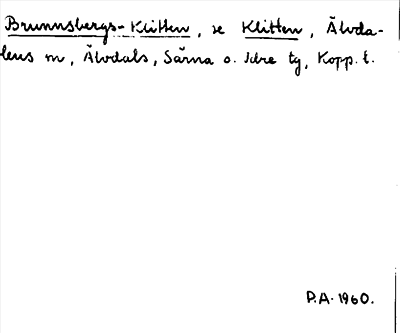 Brunnsbergs-Klitten, se Klitten, Älvda-
lens sn, Älvdals, Särna o. Idre tg, Kopp. l.
P.A. 1960.